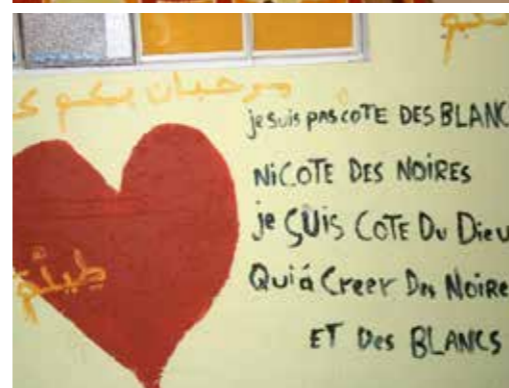 مرحبان بكم
je suis pas coTE DES BLANC
Ni COTE DES NOIRES
je SUis COTE Du Dieu
Qui á Creer Des Noire
ET Des BLANCS